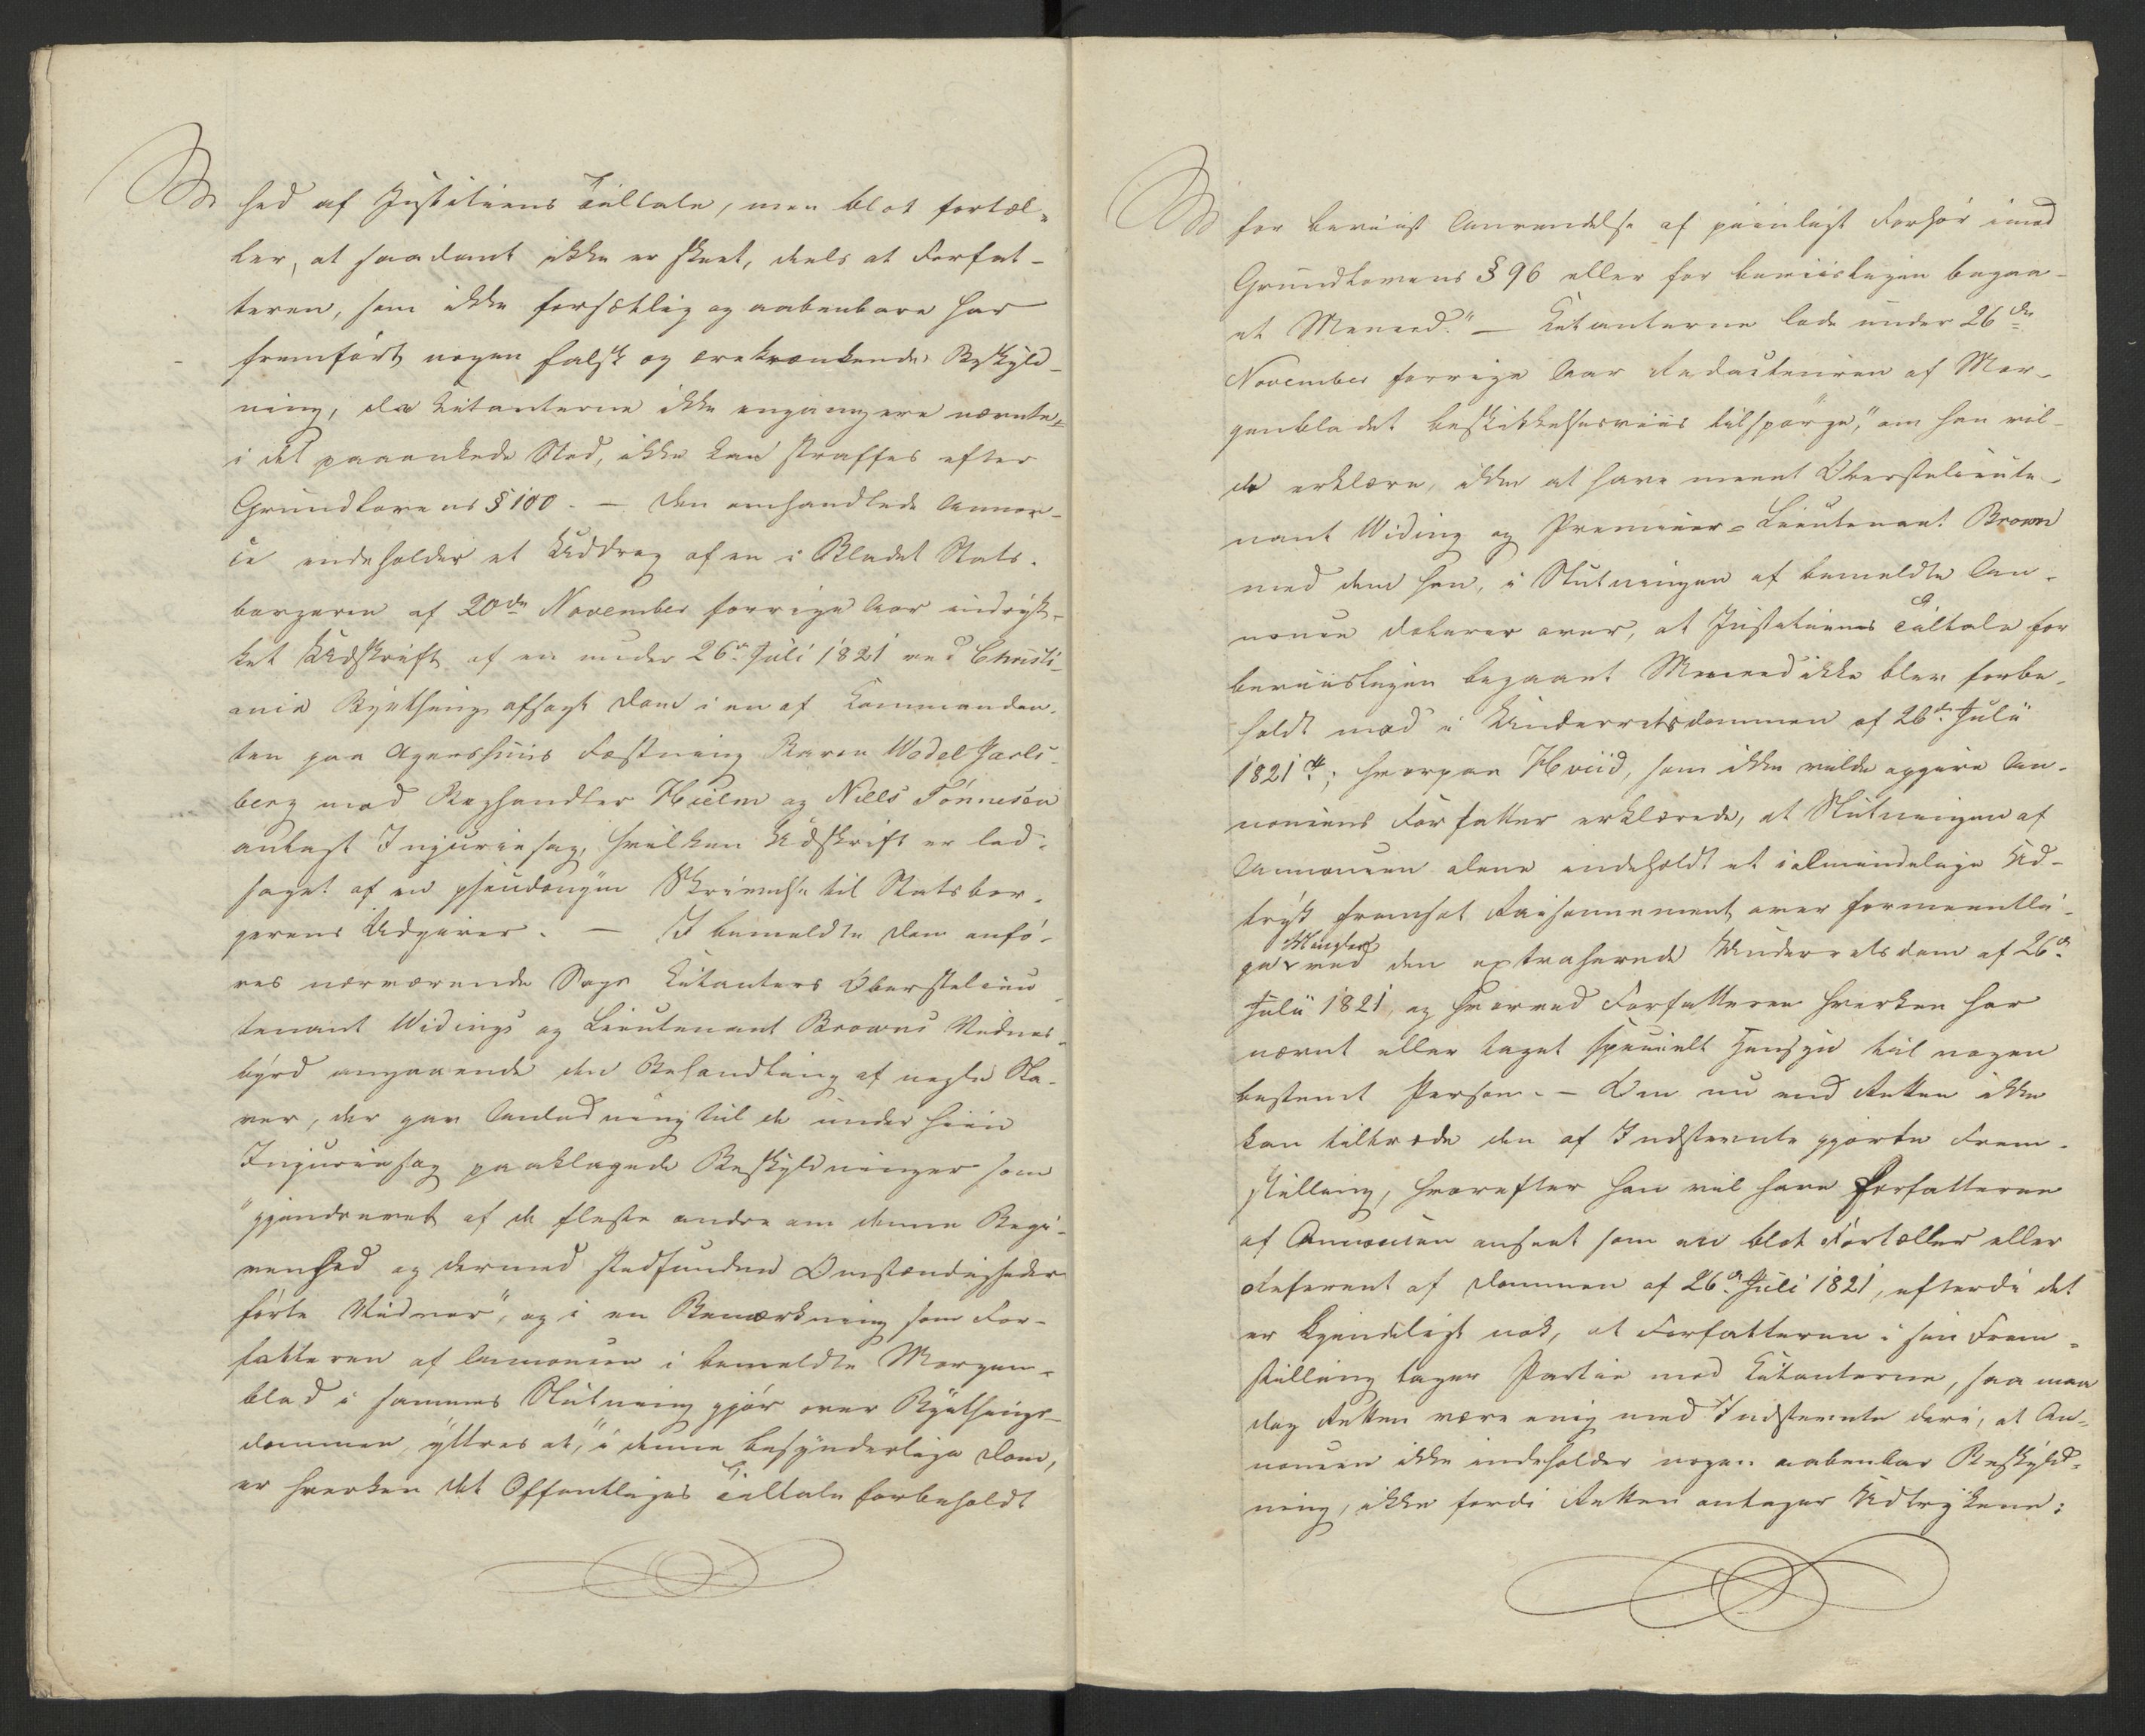 hed af Justitiens Tiltale, men blot fortæl-
ler, at saadant ikke er skeet, deels at Forfat-
teren, som ikke forsætlig og aabenbare har
fremført nogen falsk og ærekrænkende Beskyld-
ning, da Citanterne ikke engang ere nævnte
i det paaankede Sted, ikke kan straffes efter
Grundlovens § 100. — Den omhandlede Annon-
ce indeholder et Uddrag af en i Bladet Stats-
borgeren af 20de November forrige Aar indryk-
ket Udskrift af en under 26de Juli 1821 ved Christi-
ania Byething afsagt Dom i en af Commandan-
ten paa Agershuus Fæstning Baron Wedel Jarls-
berg mod Boghandler Hielm og Niels Tønnesen
anlagt Injuriesag, hvilken Udskrift er led-
saget af en pseudonym Skrivelse til Statsbor-
gerens Udgiver. — I bemeldte Dom anfø-
res nærværende Sags Citanters Oberstlieu-
tenant Widings og Lieutenant Browns Vidnes-
byrd angaaende den Behandling af nogle Sla-
ver, der gav Anledning til de under hiin
Injuriesag paaklagede Beskyldninger som
"gjendrevet af de fleste andre om denne Begi-
venhed og dermed stedfundne Omstændigheder
førte Vidner", og i en Bemærkning som For-
fatteren af Annoncen i bemeldte Morgen-
blad i sammes Slutning gjør over Byethings-
dommen, yttres at, "i denne besynderlige Dom,
er hverken det Offentliges Tiltale forbeholdt
for beviist Anvendelse af piinligt Forhør imod
Grundlovens § 96 eller for beviisligen begaa-
et Meneed." — Citanterne lode under 26de
November forrige Aar Redacteuren af Mor-
genbladet beskikkelsesviis tilspørge, "om han vil-
de erklære, ikke at have meent Oberstlieute-
nant Widing og Premier-Lieutenant Brown
med dem han, i Slutningen af bemeldte An-
nonce dolerer over, at Justitiens Tiltale for
beviisligen begaaet Meneed ikke blev forbe-
holdt mod i Underretsdommen af 26de Julii
1821"; hvorpaa Hviid, som ikke vilde opgive An-
noncens Forfatter erklærede, at Slutningen af
Annoncen alene indeholdt et i almindelige Ud-
tryk fremsat Raisonnement over formeentli-
ge Mangler ved den extraherede Underretsdom af 26de
Julii 1821, og hvorved Forfatteren hverken har
nævnt eller taget specielt Hensyn til nogen
bestemt Person. — Om nu end Retten ikke
kan tiltræde den af Indstevnte gjorte Frem-
stilling, hvorefter han vil have Forfatteren
af Annoncen anseet som en blot Fortæller eller
Referent af Dommen af 26de Juli 1821, efterdi det
er kjendeligt nok, at Forfatteren i sin Frem-
stilling tager Partie mod Citanterne, saa maa
dog Retten være enig med Indstevnte deri, at An-
noncen ikke indeholder nogen aabenbar Beskyld-
ning, ikke fordi Retten antager Udtrykkene: